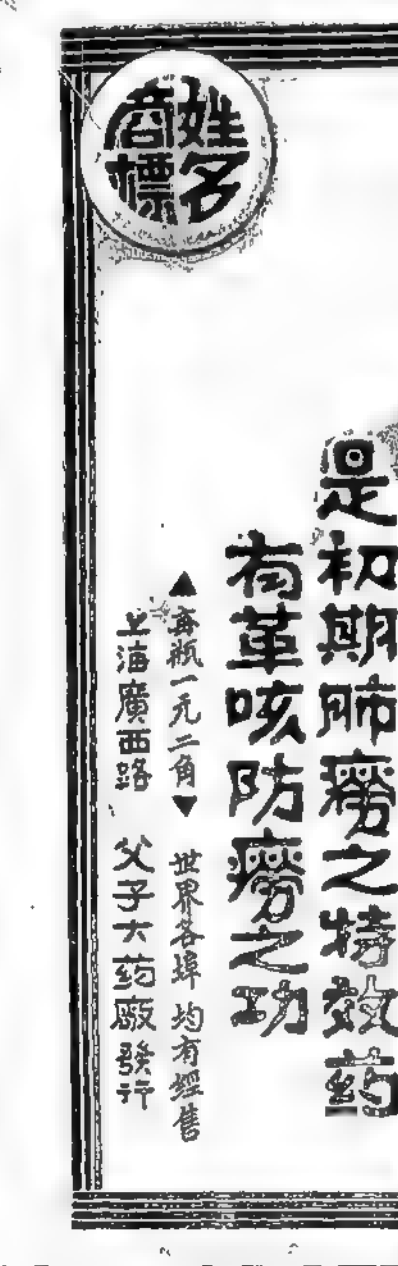 姓名商標
是初期肺癆之特效药
有革咳防癆之功
▲每瓶一元二角▼ 世界各埠 均有經售
上海廣西路 父子大药厰發行